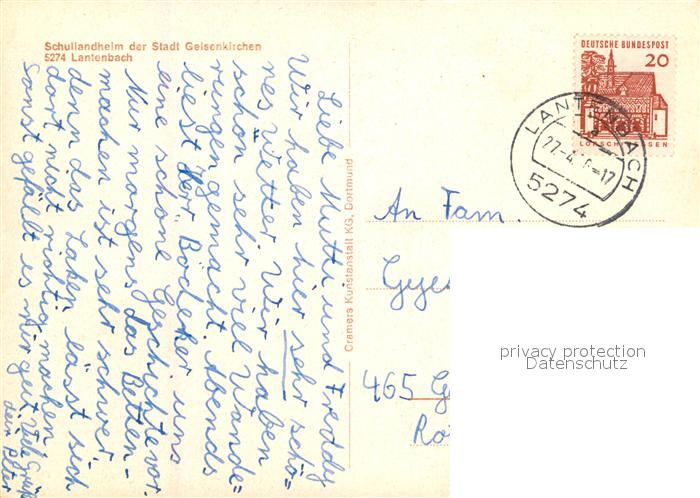 Schullandheim der Stadt Gelsenkirchen
5274 Lantenbach
Liebe Mutti und Freddy
Wir haben hier sehr schö=
nes Wetter. Wir haben
schon sehr viel Wande=
rungen gemacht. Abends
liest Herr Bödeker uns
eine schöne Geschichte vor.
Nur morgens das Betten-
machen ist sehr schwer.
denn das Laken lässt sich
dort nicht richtig machen
sonst gefällt es mir gut. Viele Grüße
dein Peter
Cramers Kunstanstalt KG, Dortmund
DEUTSCHE BUNDESPOST
20
LORSCH HESSEN
LANTENBACH
27.-4. -17
5274
An Fam.
465
privacy protection
Datenschutz